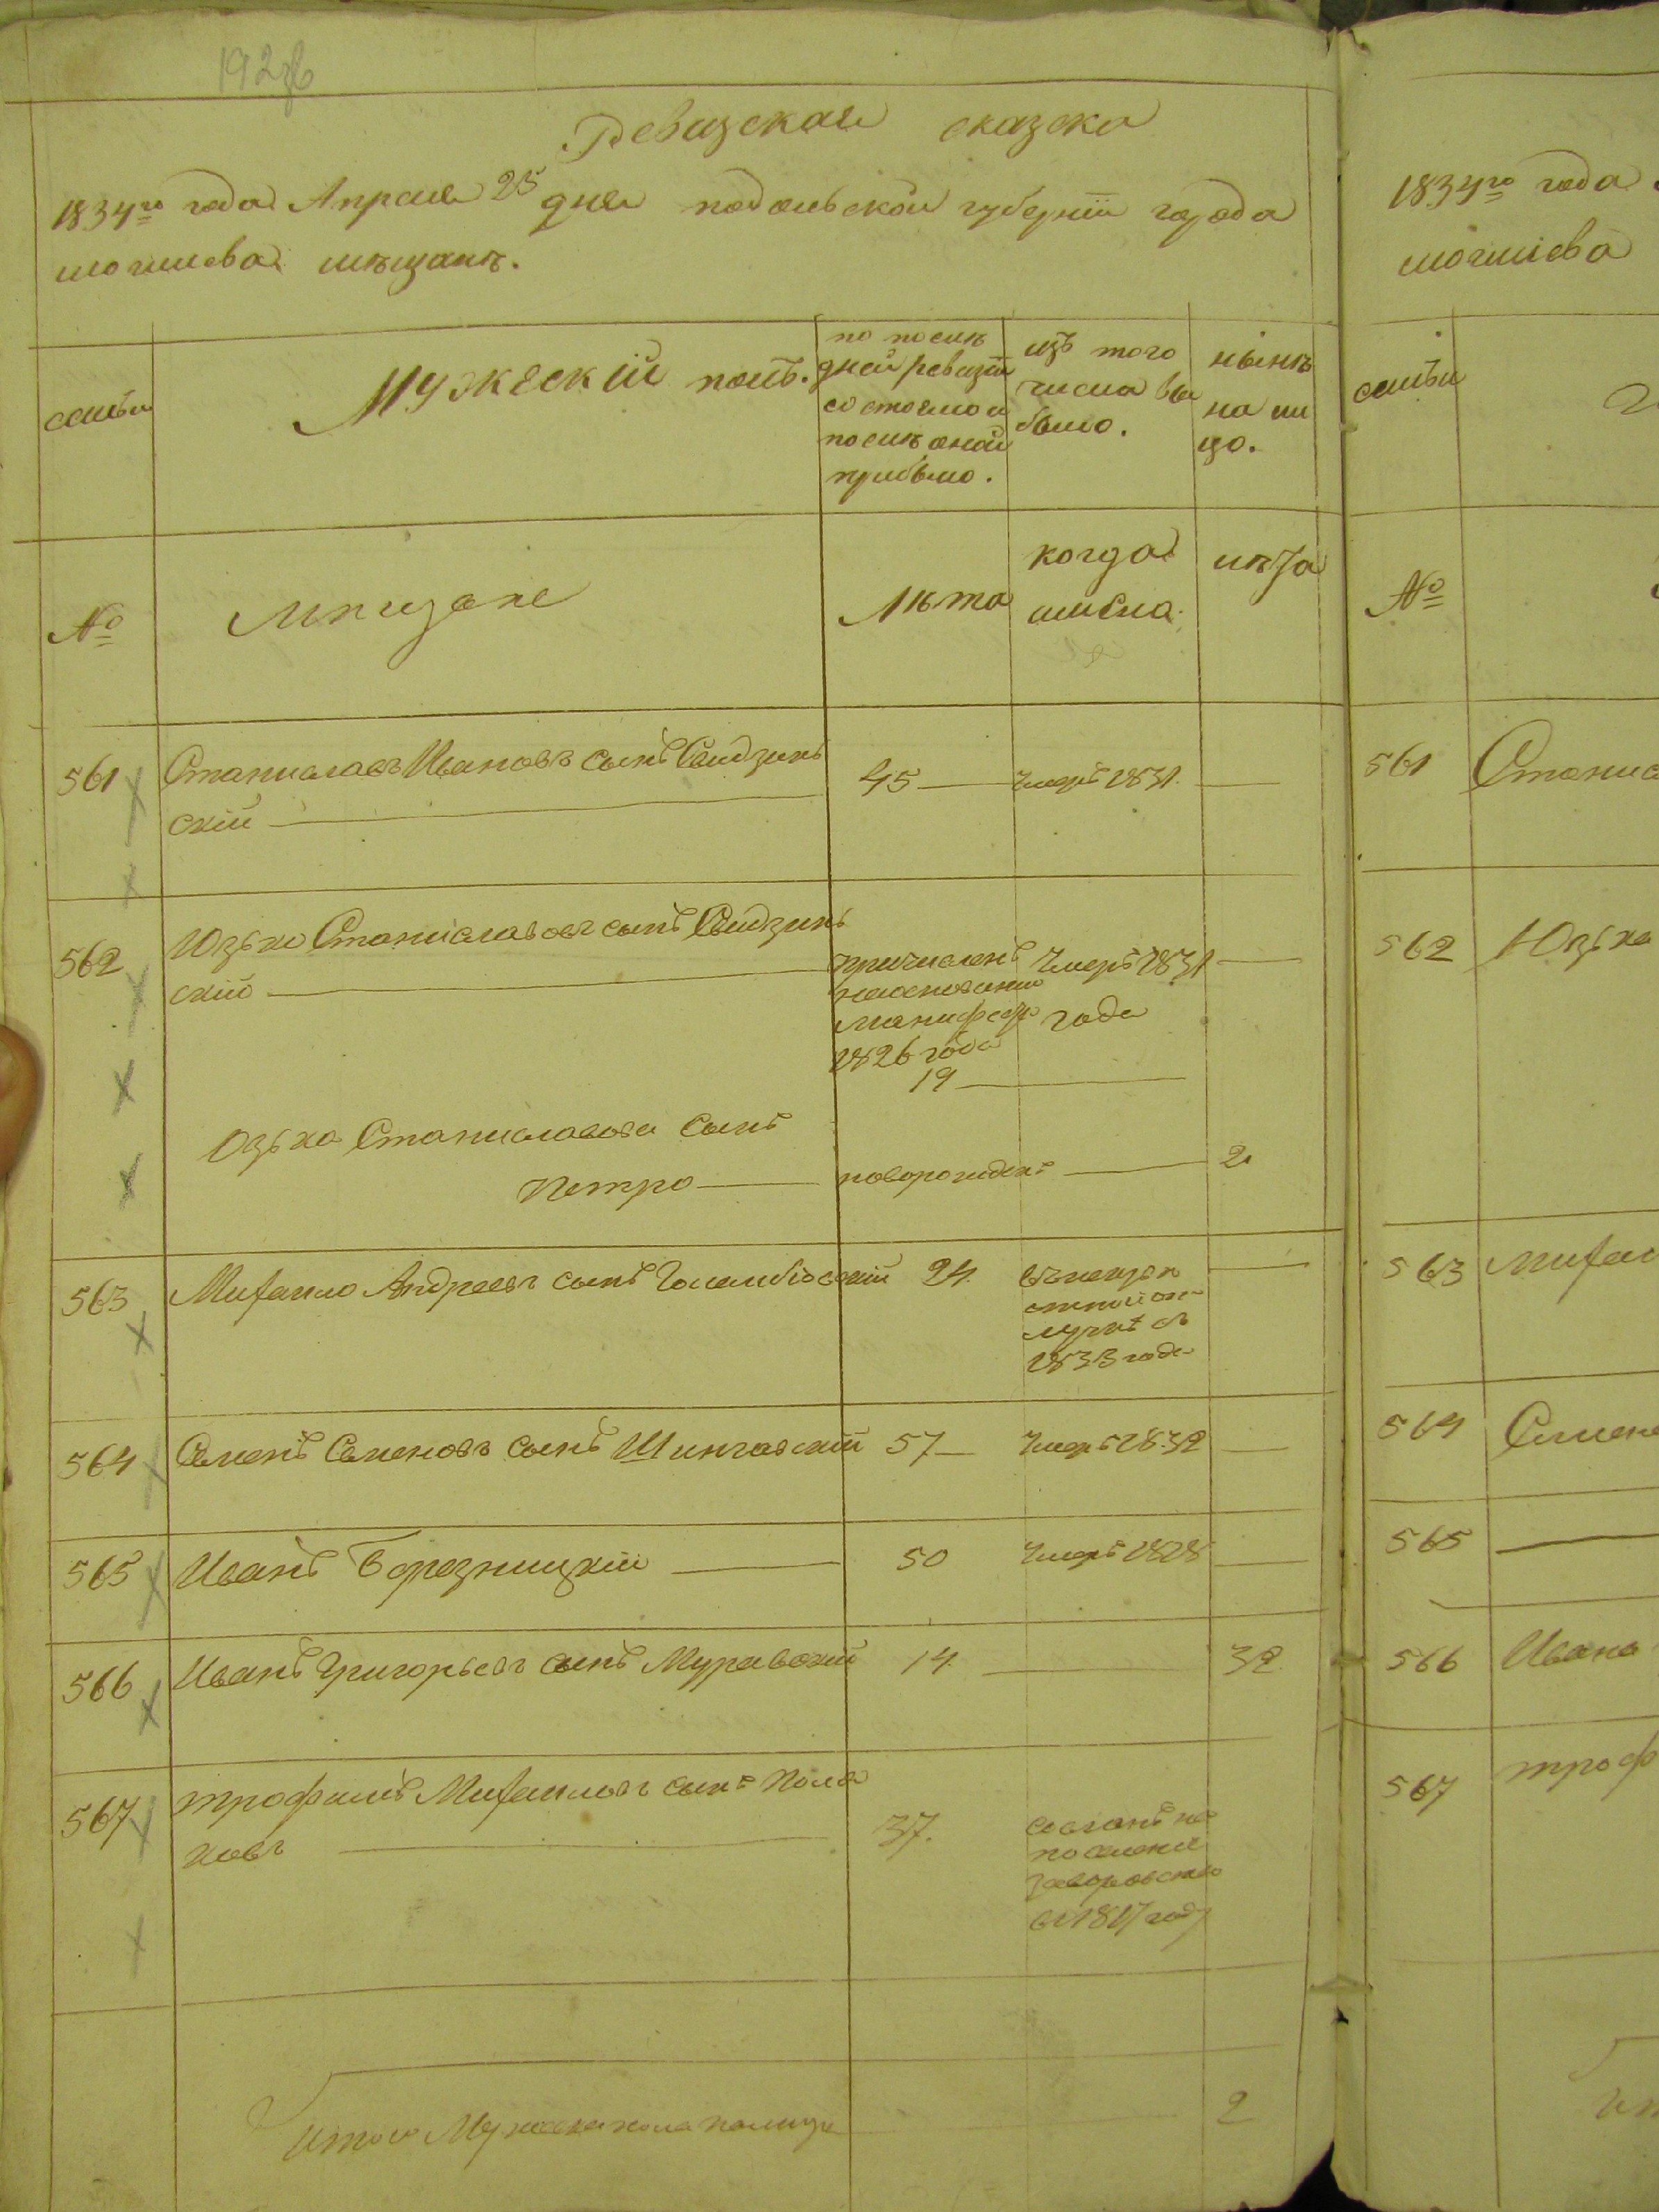 192об
Ревизская сказка
1834го года Апреля 25 дня подольской губернiи города
могилева мѣщанъ.
семьи
Мужескiй полъ.
по послѣ
дней ревизiи
состояло и
послѣ оной
прибыло.
изъ того
числа вы
было.
нынѣ
на ли
цо.
№
Мѣщане
Лѣта
когда
имено.
лѣта
561 Станиславъ Ивановъ сынъ Свидзинь
скiй
45 умеръ 1831.
562 Юзько Станиславовъ сынъ Свидзинь
скiй
причисленъ
на основании
Манифеста
1826 года
19
умеръ 1831
года
Юзька Станиславова сынъ
Петро новорожденъ 2
563 Михайло Андреевъ сынъ Голембiовскiй 24
1833 года
564 Семенъ Семеновъ сынъ Шингавскiй 57 умеръ 1832
565 Иванъ Березницкiй 50 умеръ 1828
566 Иванъ Григорьевъ сынъ Муравскiй 14 32
567 трофимъ Михайловъ сынъ Поля
ковъ
37.
сосланъ на
поселение
за воровство
въ 1817 году
Итого Мужеска пола налицо 2
1834го года
могилева
семьи
№
561 Станис
562 Юзька
563 Михай
564 Семена
565
566 Ивана
567 троф